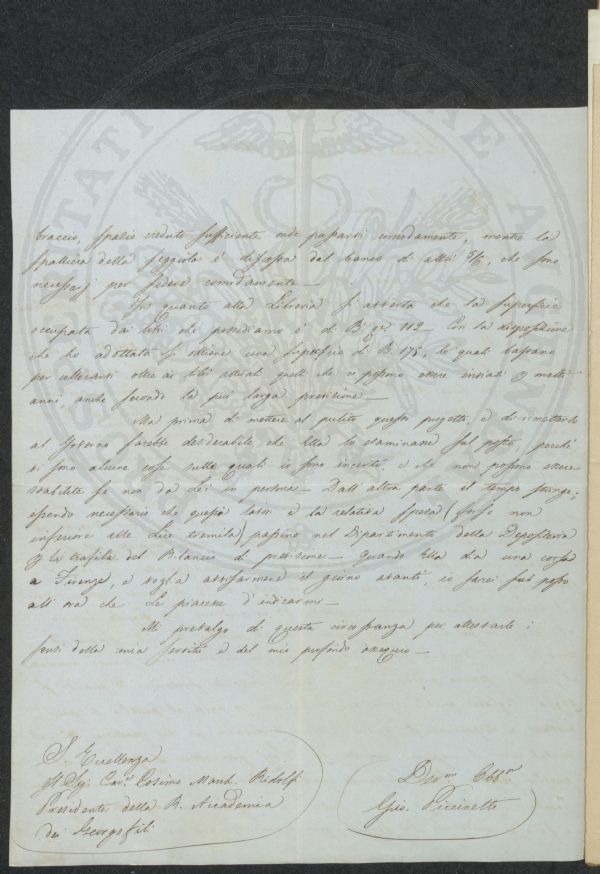 braccio, spazio creduto sufficiente onde passarvi comodamente, mentre la
spalliera della seggiola è discosta dal banco di altri 5/6, che sono
necessarj per sedere comodamente —
In quanto alla Libreria si avverta che la superficie
occupata dai libri che possediamo è di B.ª q.ᵉ 112 — Con la disposizione
che ho adottata si ottiene una superficie di B.ª 175, le quali bastano
per collocarvi oltre ai libri attuali quelli che ci possono essere inviati p molti
anni anche secondo la più larga previsione —
Ma prima di mettere al pulito questo progetto, e di rimetterlo
al Governo sarebbe desiderabile che Ella lo esaminasse sul posto, perché
vi sono alcune cose sulle quali io sono incerto, e che non possono essere
stabilite se non da Lei in persona — Dall' altra parte il tempo stringe;
essendo necessario che questi lavori e la relativa spesa (forse non
inferiore alle Lire tremila) passino nel Dipartimento della Depositeria
p la trafila del Bilancio di previsione — Quando Ella dia una corsa
a Firenze, e voglia avvisarmene il giorno avanti, io sarei sul posto
all' ora che Le piacesse d'indicarmi —
Mi prevalgo di questa circostanza per attestarle i
sensi della mia servitù e del mio profondo ossequio —
S. Eccellenza
Il Sig. Cav.ᵉ Cosimo March. Ridolfi
Presidente della R. Accademia
dei Georgofili
Dev.ᵐᵒ Obb.ᵐᵒ
Gio.